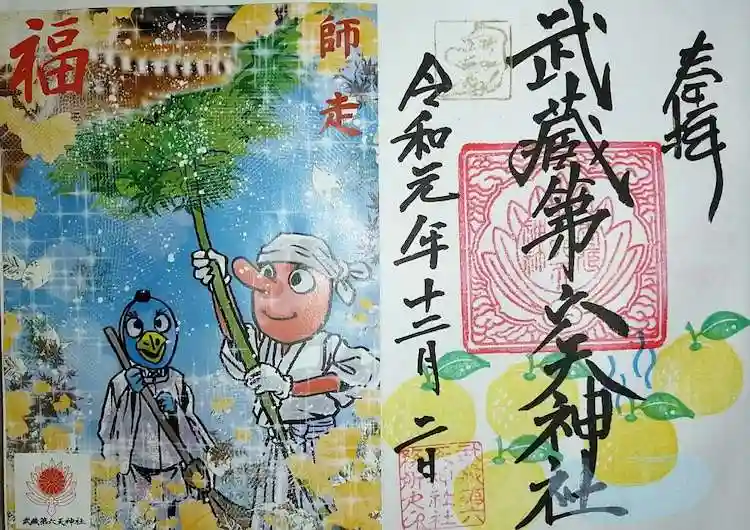 福
師走
武蔵第六天神社
奉拝
武蔵第六天神社
令和元年十二月二日